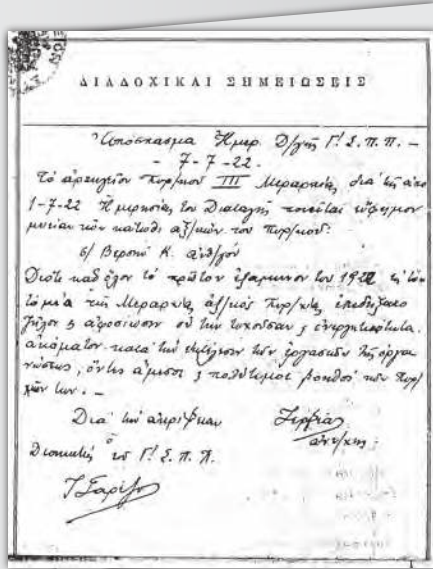 ΔΙΑΔΟΧΙΚΑΙ ΣΗΜΕΙΩΣΕΙΣ
Ἀπόσπασμα Ἡμερ. Δ/γῆς Γ! Σ. Π. Π. –
- 7-7-22.
Τό ἀρχηγεῖον Πυρ/κοῦ III Μεραρχίας διά τῆς ἀπό
1-7-22 Ἡμερησίας του Διαταγῆς ποιεῖται εὔφημον
μνείαν τῶν κάτωθι ἀξ/κῶν τοῦ Πυρ/κοῦ:
6/ Κ. ἀνθ/γόν
Διότι καθ' ὅλον τό πρῶτον ἑξάμηνον του 1922 εἰς τόν
τομέα τῆς Μεραρχίας ἀξ/κός Πυρ/κοῦ
ζῆλον & ἀφοσίωσιν οὐ τήν τυχοῦσαν & ἐνεργητικότητα
ἀκάματον κατά τήν ἐκτέλεσιν τῶν ἐργασιῶν τῆς ὀργα
νώσεως, ὄντες ἄμεσοι & πολύτιμοι βοηθοί τῶν
των. –
Διά τήν ἀκρίβειαν
ὁ
Διοικητής τοῦ Γ! Σ. Π. Π.